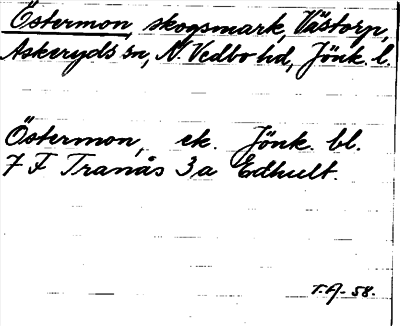 Östermon, skogsmark, Västorp,
Askeryds sn, N. Vedbo hd, Jönk. l.
Östermon, ek. Jönk. bl.
7 F Tranås 3 a Edhult.
T.A-58.